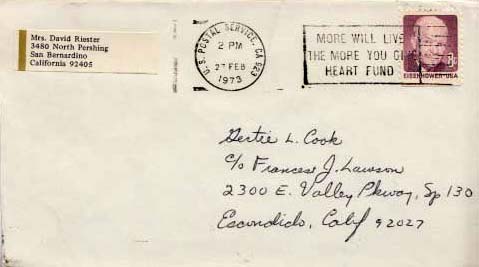 Mrs. David Riester
3480 North Pershing
San Bernardino
California 92405
U.S. POSTAL SERVICE, CA 923
2 PM
27 FEB
1973
MORE WILL LIVE
THE MORE YOU GI
HEART FUND
8¢
EISENHOWER·USA
Gertie L. Cook
c/o Frances J. Lawson
2300 E. Valley Pkway, Sp 130
Escondido, Calif 92027